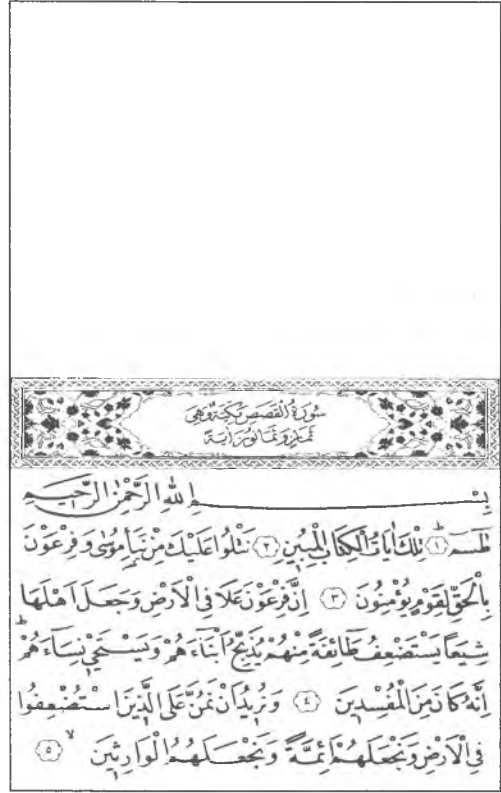 سُورَةُ الْقَصَصِ مَكِّيَّةٌ وَهِيَ
ثَمَانٍ وَثَمَانُونَ اٰيَةً
بِسْمِ اللّٰهِ الرَّحْمٰنِ الرَّح۪يمِ
طٰسٓمٓ ﴿١﴾ تِلْكَ اٰيَاتُ الْكِتَابِ الْمُب۪ينِ ﴿٢﴾ نَتْلُوا عَلَيْكَ مِنْ نَبَأِ مُوسٰى وَفِرْعَوْنَ
بِالْحَقِّ لِقَوْمٍ يُؤْمِنُونَ ﴿٣﴾ اِنَّ فِرْعَوْنَ عَلَا فِي الْاَرْضِ وَجَعَلَ اَهْلَهَا
شِيَعًا يَسْتَضْعِفُ طَٓائِفَةً مِنْهُمْ يُذَبِّحُ اَبْنَٓاءَهُمْ وَيَسْتَحْي۪ نِسَٓاءَهُمْۜ
اِنَّهُ كَانَ مِنَ الْمُفْسِد۪ينَ ﴿٤﴾ وَنُر۪يدُ اَنْ نَمُنَّ عَلَى الَّذ۪ينَ اسْتُضْعِفُوا
فِي الْاَرْضِ وَنَجْعَلَهُمْ اَئِمَّةً وَنَجْعَلَهُمُ الْوَارِث۪ينَۙ ﴿٥﴾